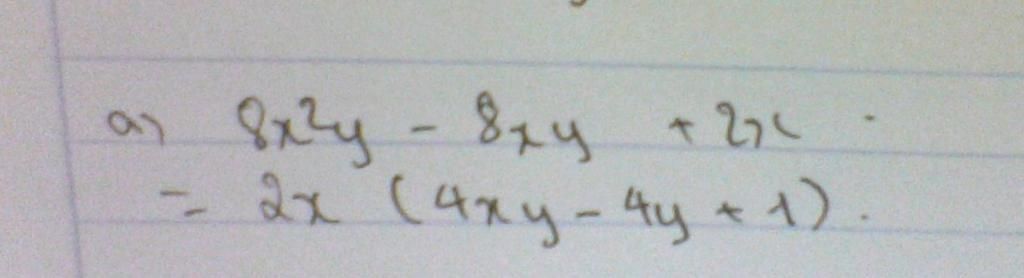 a) 8x²y - 8xy + 2x.
= 2x (4xy - 4y + 1).